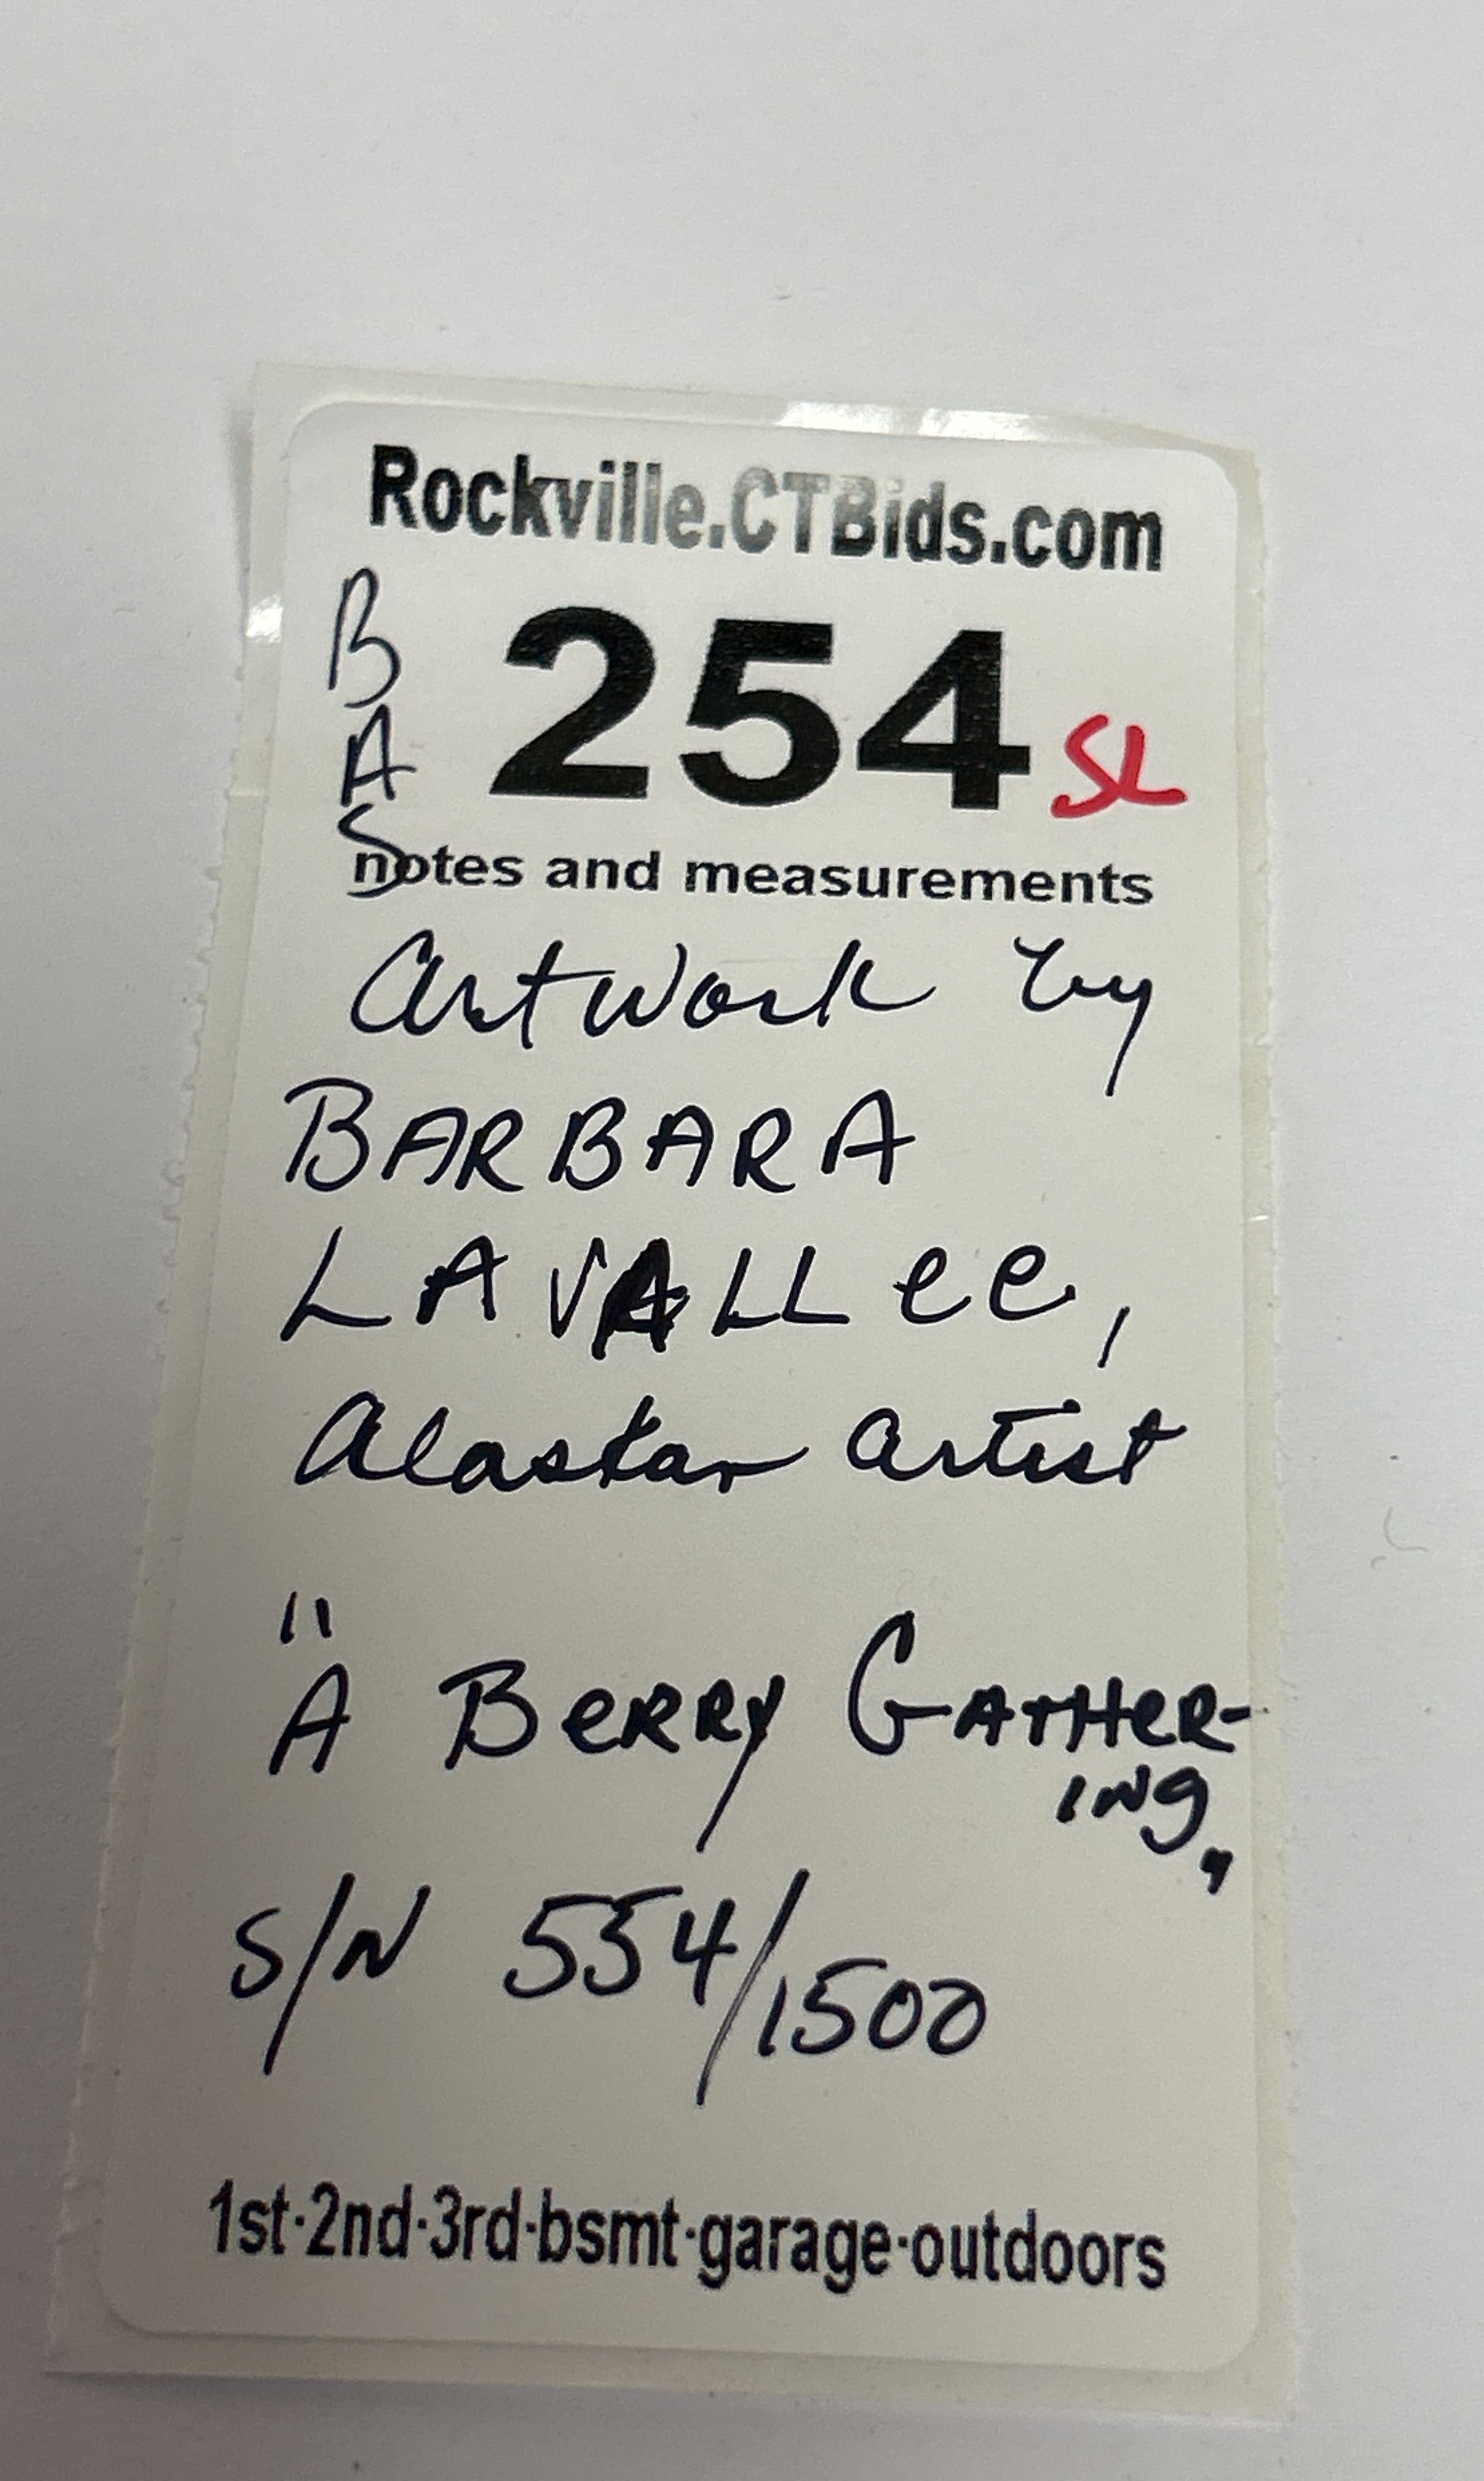 Rockville.CTBids.com
BAS
254 SL
notes and measurements
Artwork by
BARBARA
LAVALLee,
Alaskan Artist
"A BeRRy GATHeR-
iNg"
S/N 554/1500
1st·2nd·3rd·bsmt·garage·outdoors